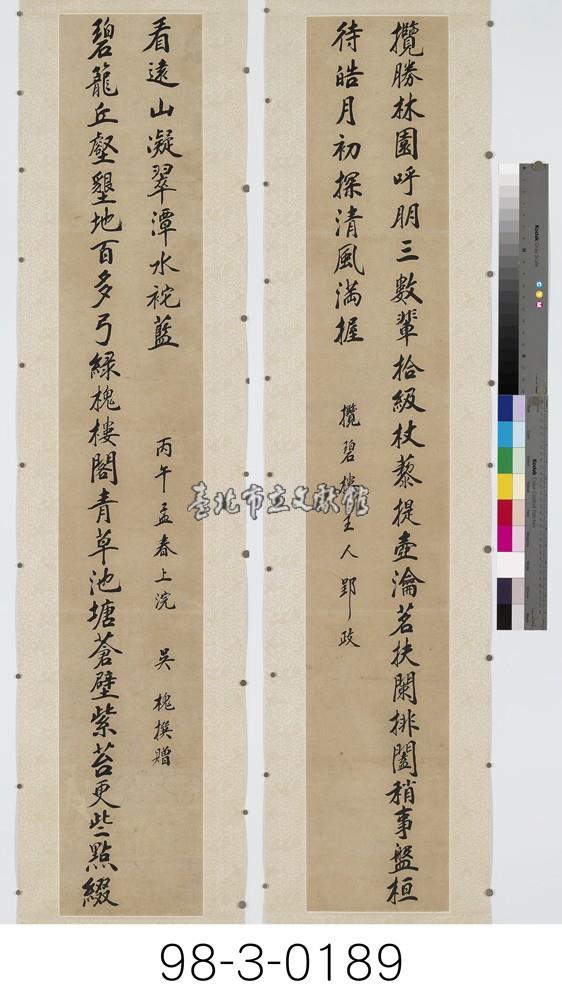 攬勝林園呼朋三數輩拾級杖藜提壺瀹茗扶闌排闥稍事盤桓
待皓月初探清風滿握
攬碧樓主人郢政
碧籠丘壑墾地百多弓綠槐樓閣青草池塘蒼壁紫苔更些點綴
看遠山凝翠潭水拕藍
丙午孟春上浣 吳槐撰贈
臺北市立文獻館
Kodak Gray Scale
C Y M
98-3-0189